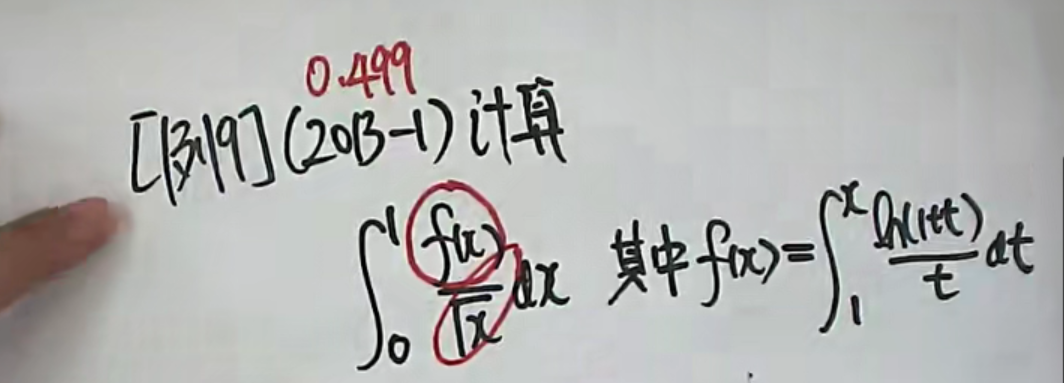 0.499
[例9](2013-1)计算
∫₀¹ f(x)/√x dx 其中f(x)=∫₁ˣ ln(1+t)/t dt